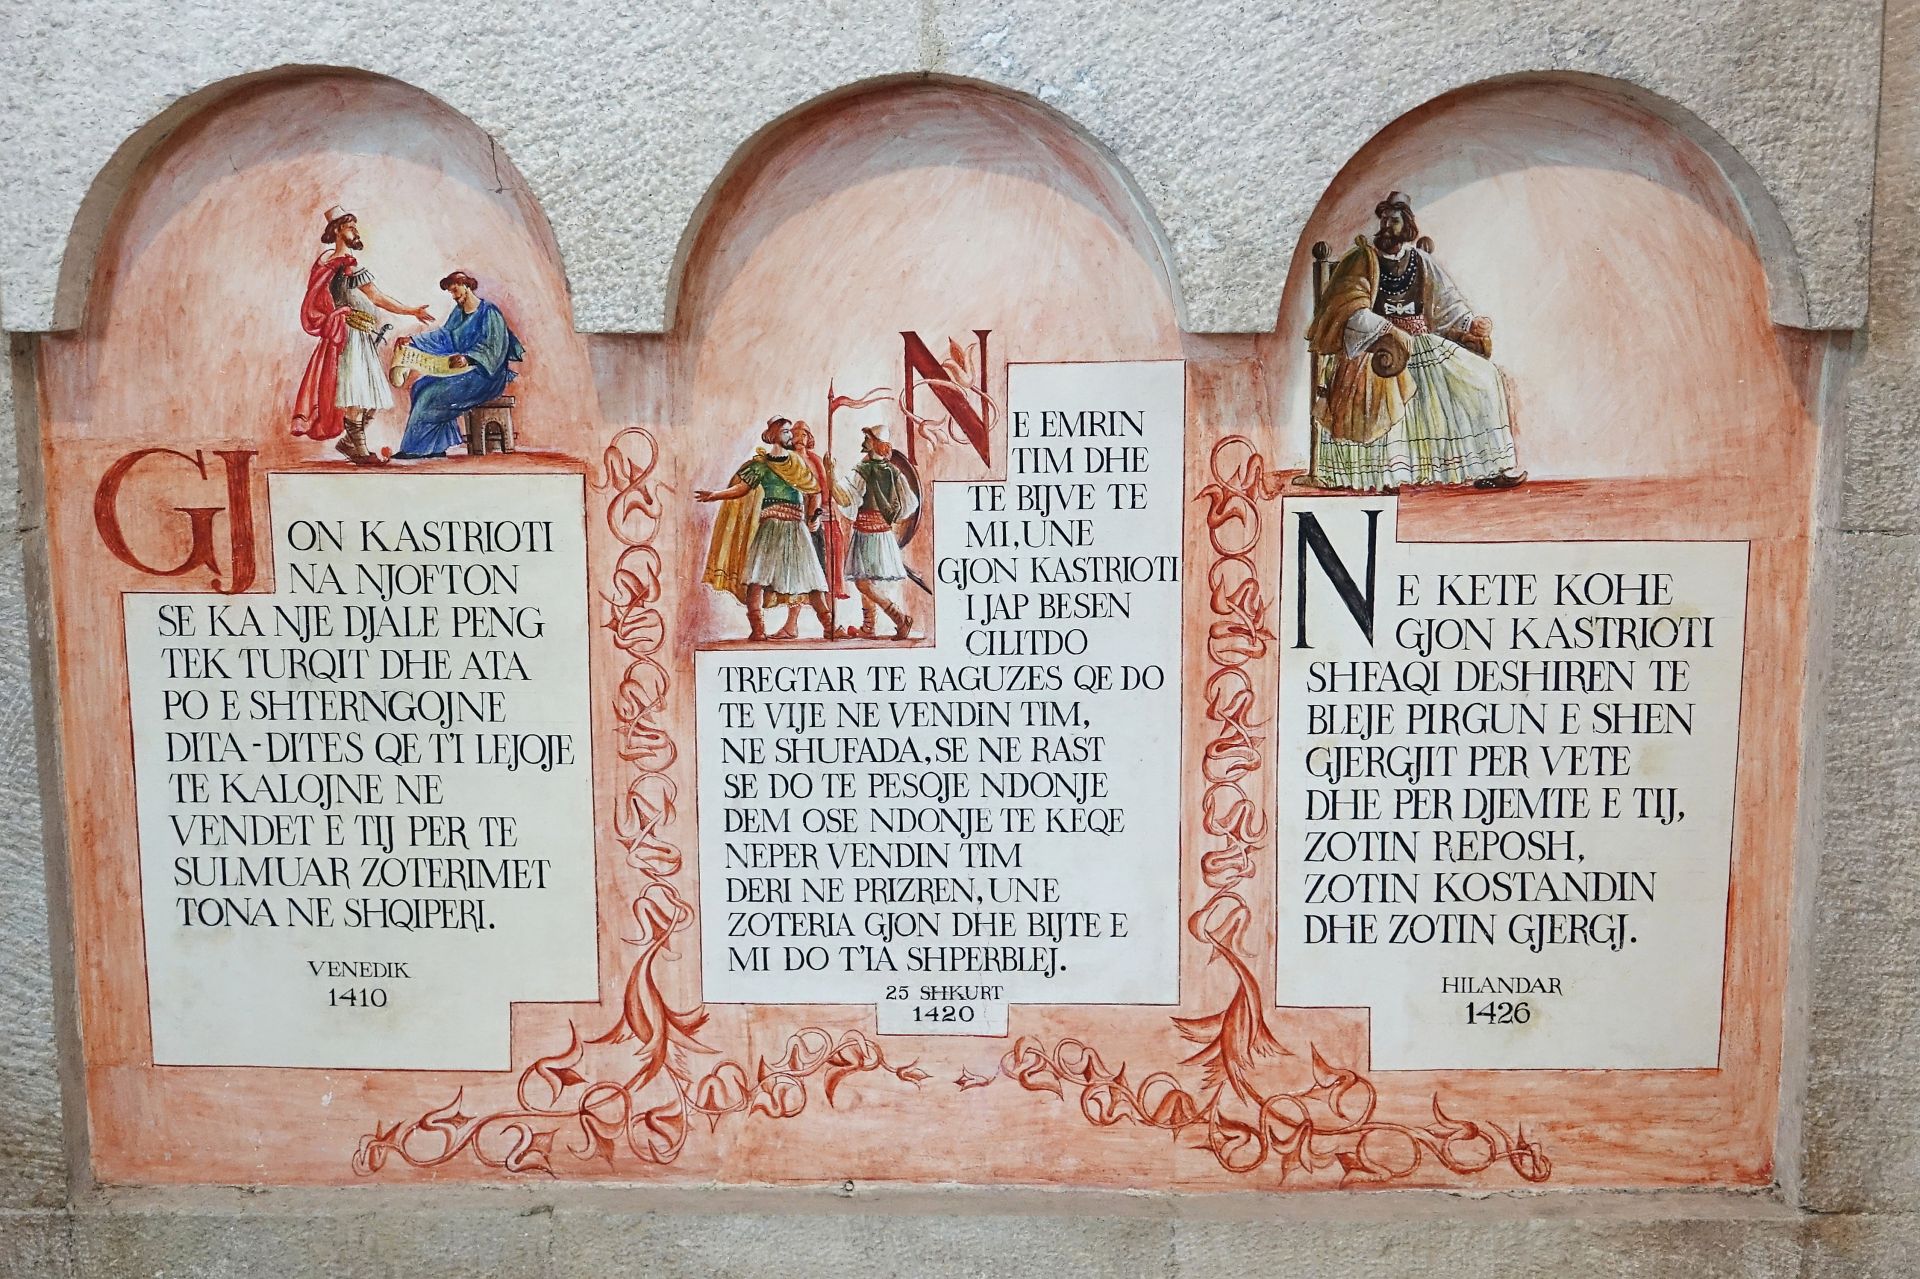 GJON KASTRIOTI
NA NJOFTON
SE KA NJE DJALE PENG
TEK TURQIT DHE ATA
PO E SHTERNGOJNE
DITA-DITES QE T'I LEJOJE
TE KALOJNE NE
VENDET E TIJ PER TE
SULMUAR ZOTERIMET
TONA NE SHQIPERI.
VENEDIK
1410
NE EMRIN
TIM DHE
TE BIJVE TE
MI, UNE
GJON KASTRIOTI
I JAP BESEN
CILITDO
TREGTAR TE RAGUZES QE DO
TE VIJE NE VENDIN TIM,
NE SHUFADA, SE NE RAST
SE DO TE PESOJE NDONJE
DEM OSE NDONJE TE KEQE
NEPER VENDIN TIM
DERI NE PRIZREN, UNE
ZOTERIA GJON DHE BIJTE E
MI DO T'IA SHPERBLEJ.
25 SHKURT
1420
NE KETE KOHE
GJON KASTRIOTI
SHFAQI DESHIREN TE
BLEJE PIRGUN E SHEN
GJERGJIT PER VETE
DHE PER DJEMTE E TIJ,
ZOTIN REPOSH,
ZOTIN KOSTANDIN
DHE ZOTIN GJERGJ.
HILANDAR
1426